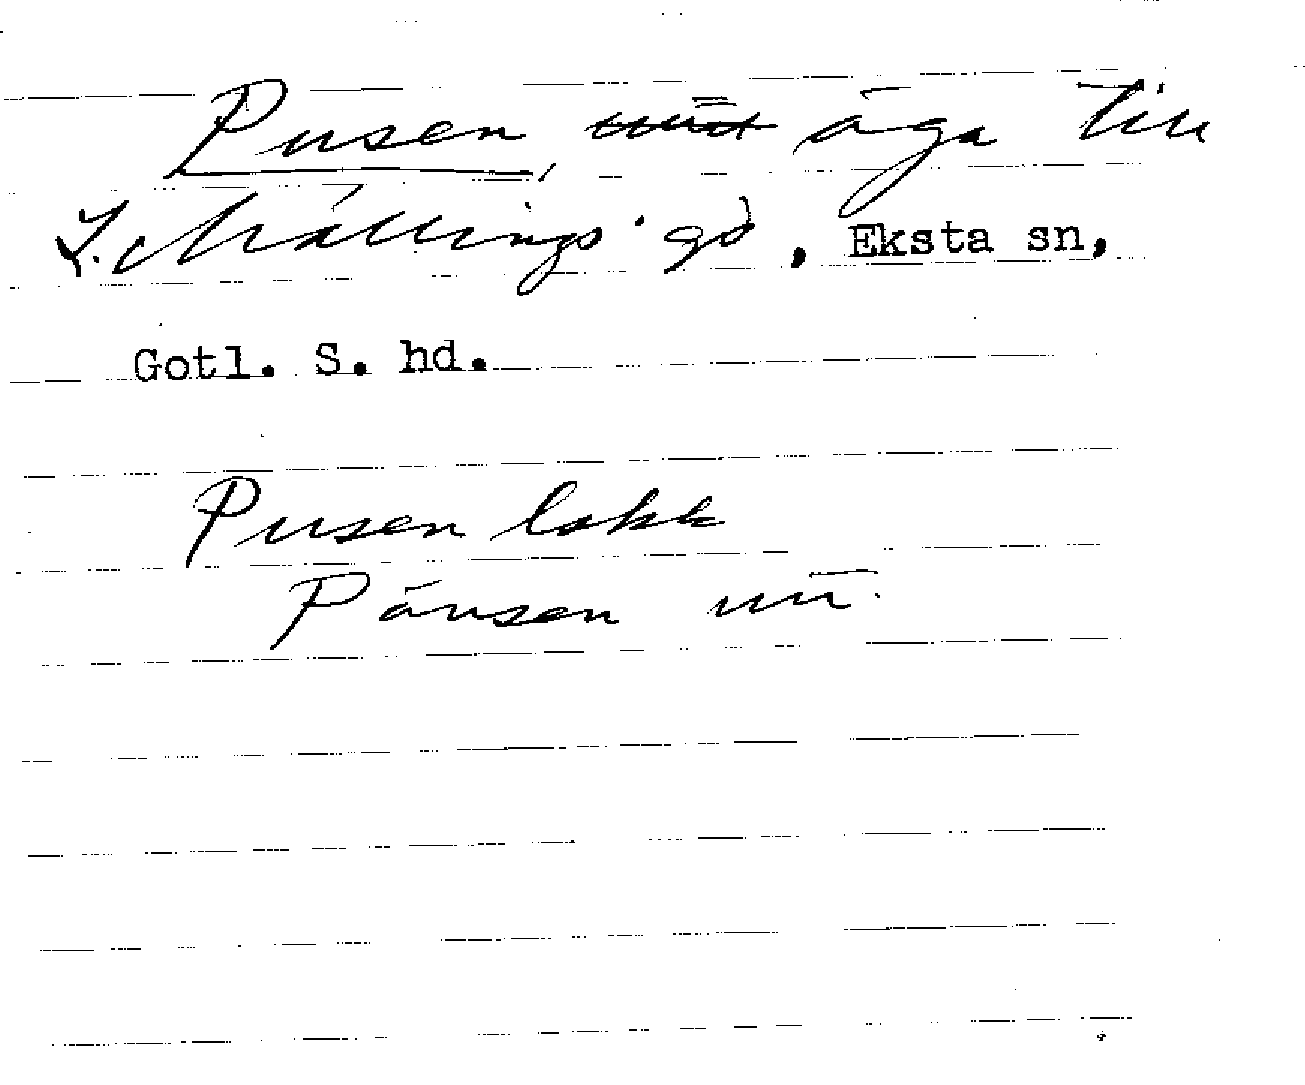 Pusen, äga till
L. Mällings gd, Eksta sn,
Gotl. S. hd.
Pusen lokk
Päusen uu